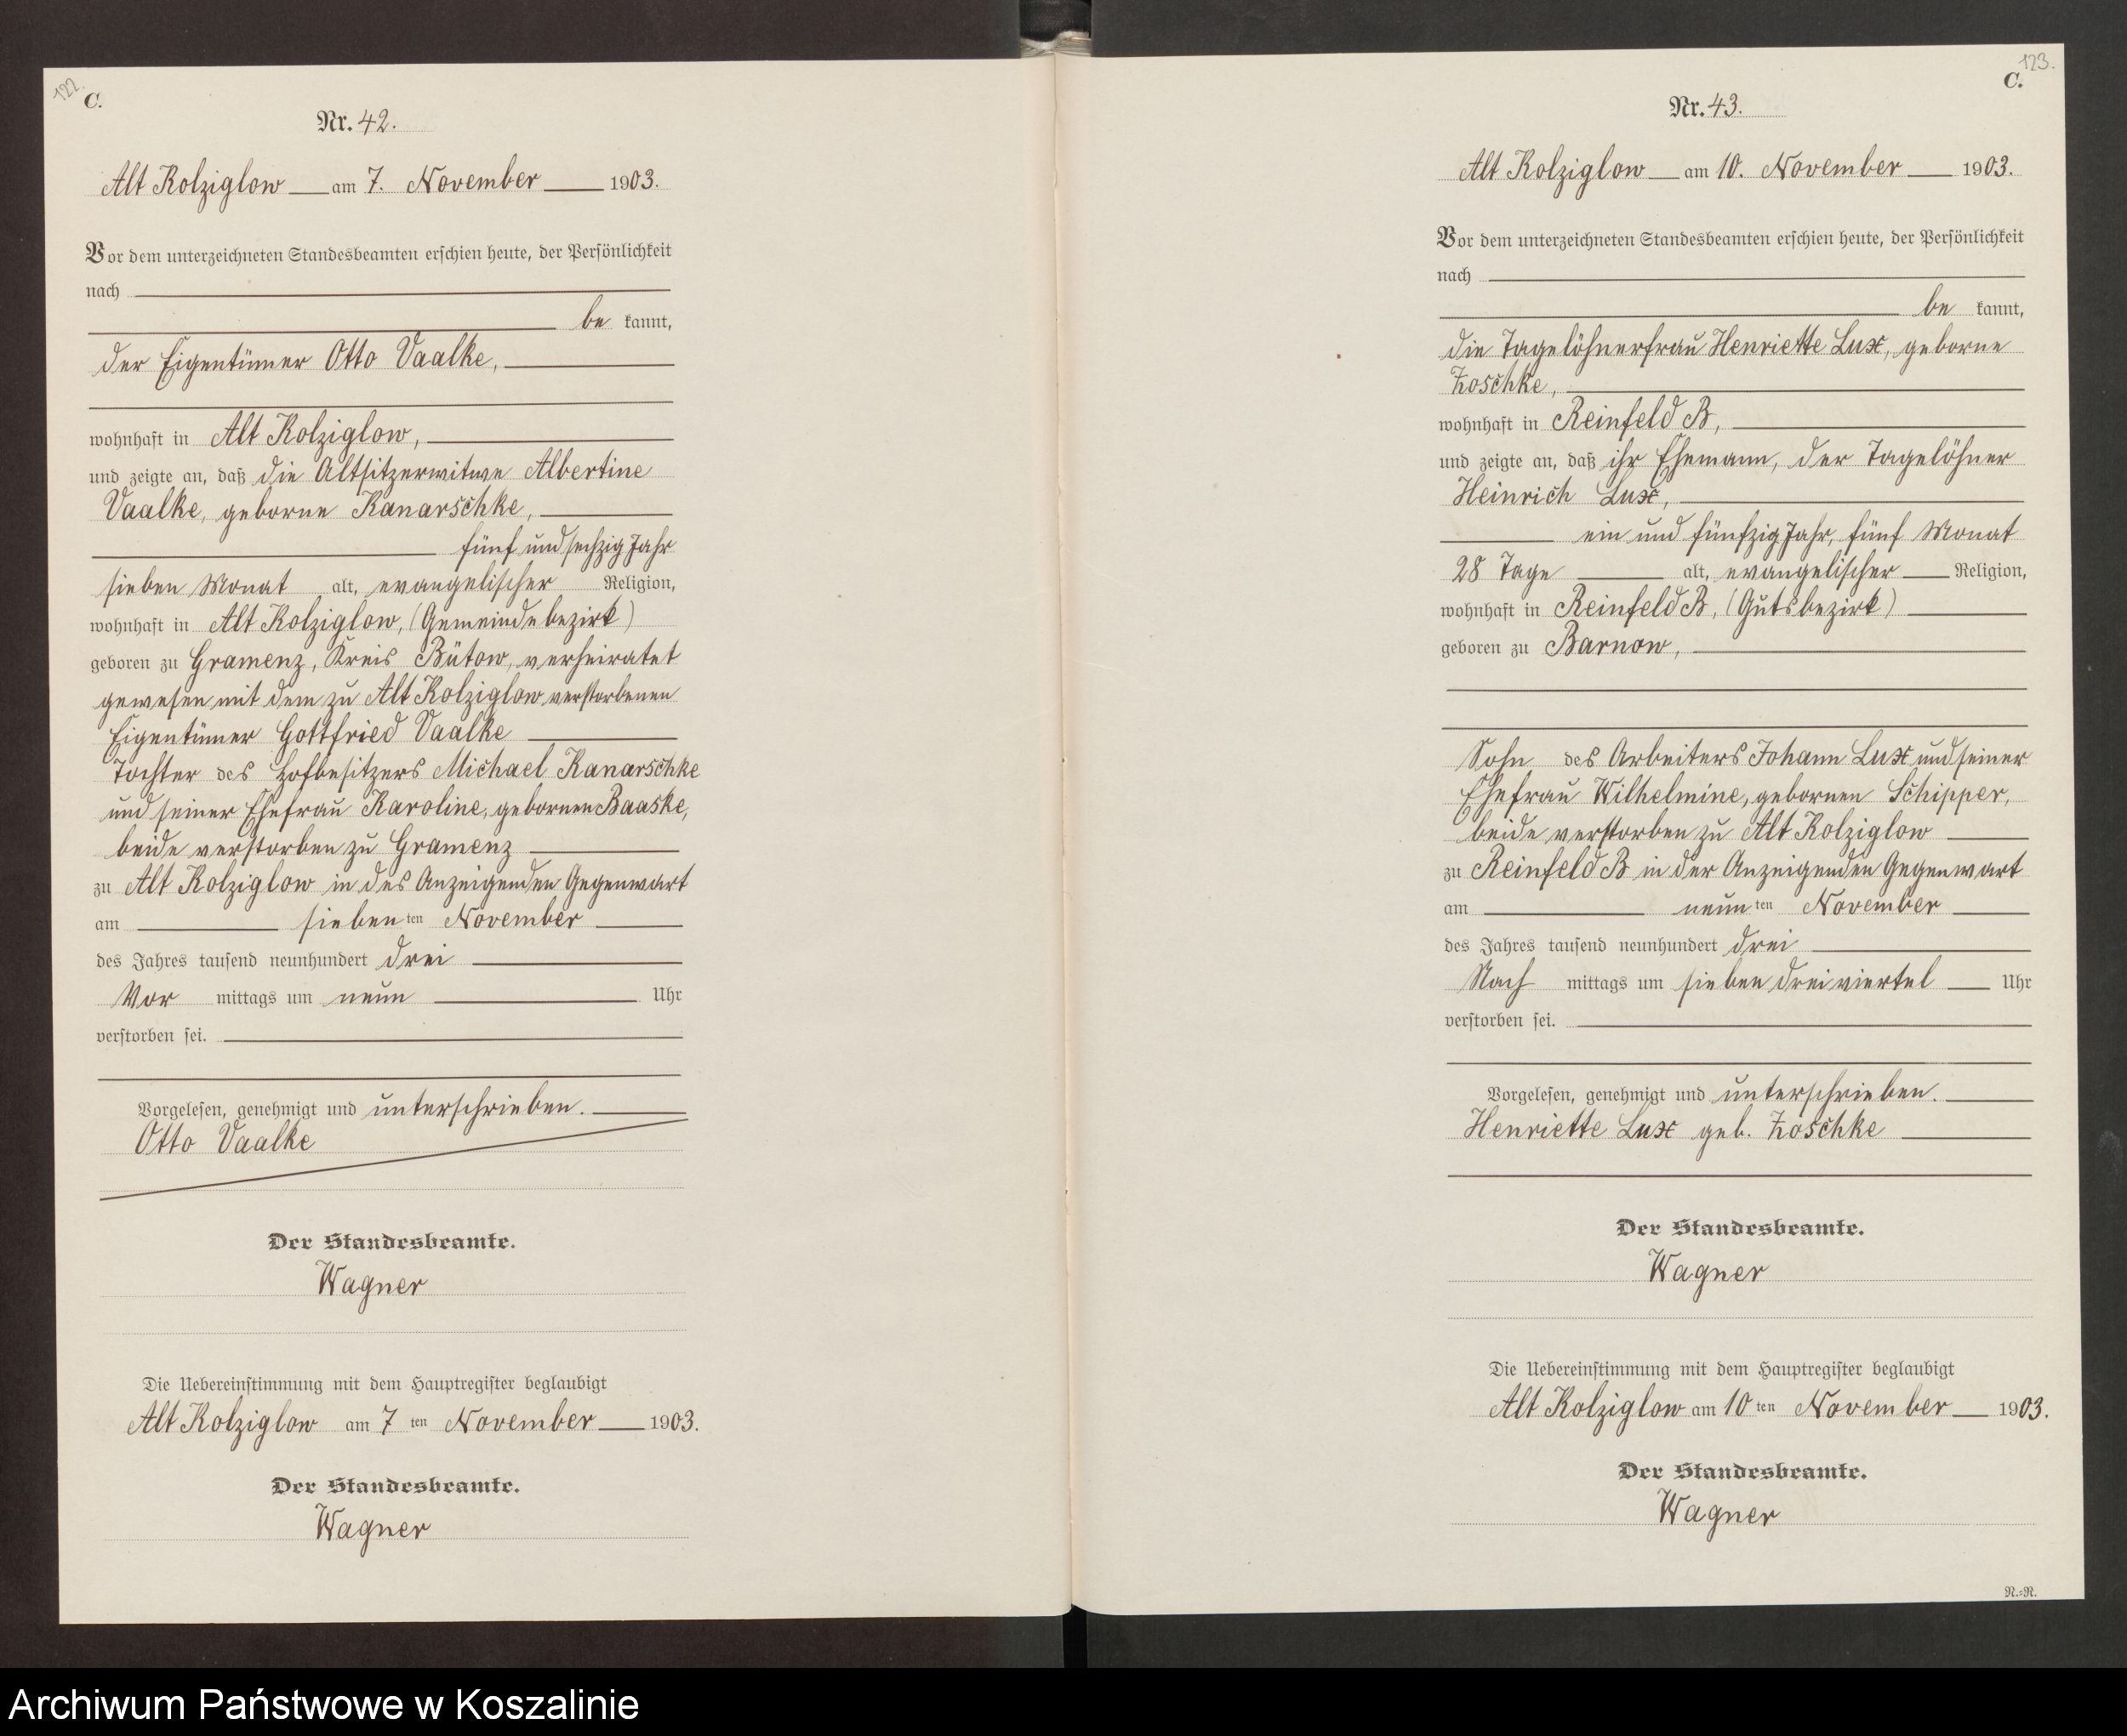 122.
C.
Nr. 42.
Alt Kolziglow am 7. November 1903.
Vor dem unterzeichneten Standesbeamten erschien heute, der Persönlichkeit
nach
be kannt,
der Eigentümer Otto Vaalke,
wohnhaft in Alt Kolziglow,
und zeigte an, daß die Altsitzerwitwe Albertine
Vaalke, geborne Kanarschke,
fünf und sechzig Jahr
sieben Monat alt, evangelischer Religion,
wohnhaft in Alt Kolziglow, (Gemeindebezirk)
geboren zu Gramenz, Kreis Bütow, verheiratet
gewesen mit dem zu Alt Kolziglow verstorbenen
Eigentümer Gottfried Vaalke
Tochter des Hofbesitzers Michael Kanarschke
und seiner Ehefrau Karoline, gebornen Baaske,
beide verstorben zu Gramenz
zu Alt Kolziglow in des Anzeigenden Gegenwart
am sieben ten November
des Jahres tausend neunhundert drei
Vor mittags um neun Uhr
verstorben sei.
Vorgelesen, genehmigt und unterschrieben.
Otto Vaalke
Der Standesbeamte.
Wagner
Die Uebereinstimmung mit dem Hauptregister beglaubigt
Alt Kolziglow am 7 ten November 1903.
Der Standesbeamte.
Wagner
123.
C.
Nr. 43.
Alt Kolziglow am 10. November 1903.
Vor dem unterzeichneten Standesbeamten erschien heute, der Persönlichkeit
nach
be kannt,
die Tagelöhnerfrau Henriette Lux, geborne
Zoschke,
wohnhaft in Reinfeld B,
und zeigte an, daß ihr Ehemann, der Tagelöhner
Heinrich Lux,
ein und fünfzig Jahr, fünf Monat
28 Tage alt, evangelischer Religion,
wohnhaft in Reinfeld B, (Gutsbezirk)
geboren zu Barnow,
Sohn des Arbeiters Johann Lux und seiner
Ehefrau Wilhelmine, gebornen Schipper,
beide verstorben zu Alt Kolziglow
zu Reinfeld B in der Anzeigenden Gegenwart
am neun ten November
des Jahres tausend neunhundert drei
Nach mittags um sieben dreiviertel Uhr
verstorben sei.
Vorgelesen, genehmigt und unterschrieben.
Henriette Lux geb. Zoschke
Der Standesbeamte.
Wagner
Die Uebereinstimmung mit dem Hauptregister beglaubigt
Alt Kolziglow am 10 ten November 1903.
Der Standesbeamte.
Wagner
N.=N.
Archiwum Państwowe w Koszalinie